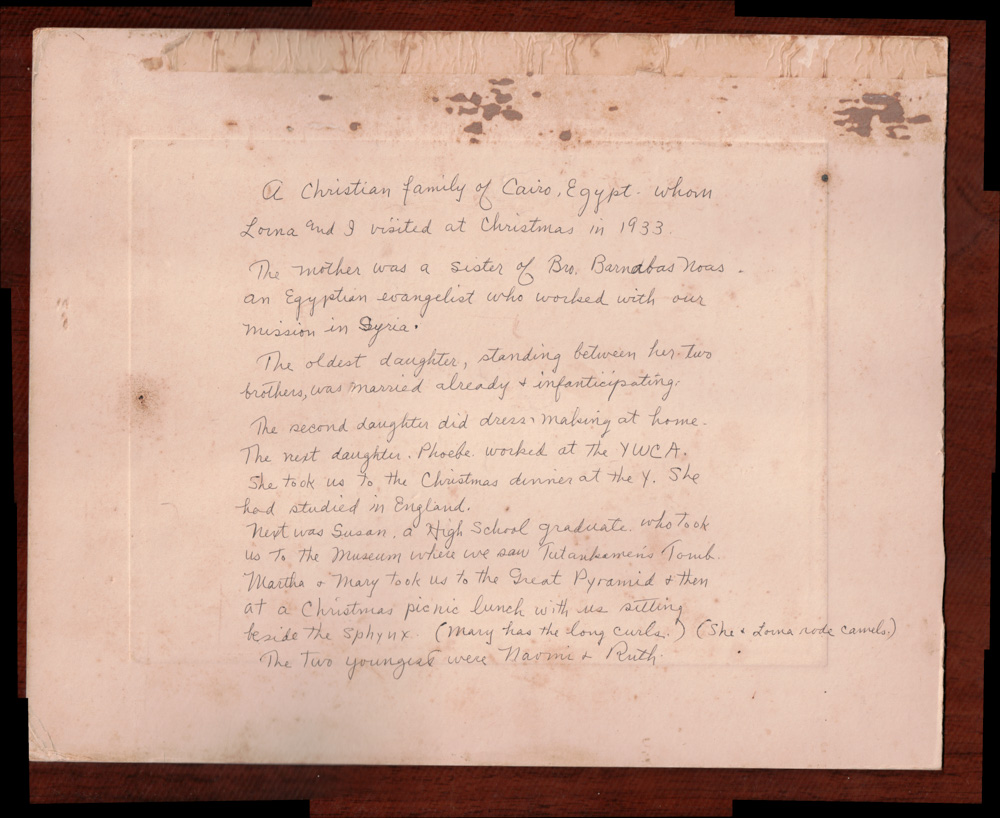 A Christian family of Cairo, Egypt. whom
Lorna and I visited at Christmas in 1933.
The mother was a sister of Bro. Barnabas Noas.
an Egyptian evangelist who worked with our
mission in Syria.
The oldest daughter, standing between her two
brothers, was married already & infanticipating.
The second daughter did dress-making at home.
The next daughter. Phoebe. worked at the YWCA.
She took us to the Christmas dinner at the Y. She
had studied in England.
Next was Susan, a High School graduate. who took
us to the Museum where we saw Tutankamen's Tomb.
Martha & Mary took us to the Great Pyramid & then
at a Christmas picnic lunch with us sitting
beside the Sphynx. (Mary has the long curls.) (She & Lorna rode camels.)
The two youngest were Naomi & Ruth.